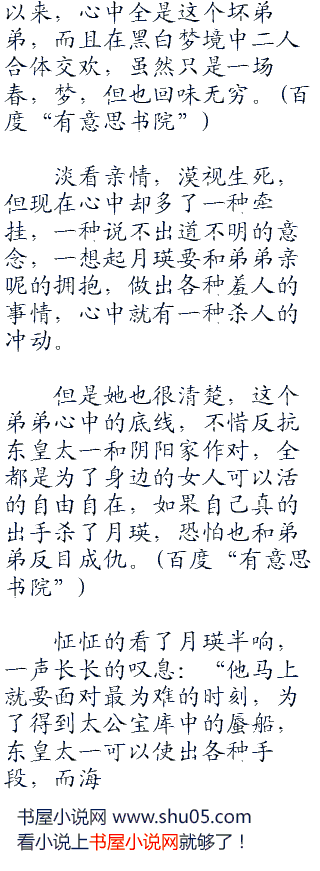 以来，心中全是这个坏弟
弟，而且在黑白梦境中二人
合体交欢，虽然只是一场
春，梦，但也回味无穷。(百
度“有意思书院”)
淡看亲情，漠视生死，
但现在心中却多了一种牵
挂，一种说不出道不明的意
念，一想起月瑛要和弟弟亲
昵的拥抱，做出各种羞人的
事情，心中就有一种杀人的
冲动。
但是她也很清楚，这个
弟弟心中的底线，不惜反抗
东皇太一和阴阳家作对，全
都是为了身边的女人可以活
的自由自在，如果自己真的
出手杀了月瑛，恐怕也和弟
弟反目成仇。(百度“有意思
书院”)
怔怔的看了月瑛半响，
一声长长的叹息：“他马上
就要面对最为难的时刻，为
了得到太公宝库中的蜃船，
东皇太一可以使出各种手
段，而海
书屋小说网 www.shu05.com
看小说上书屋小说网就够了！